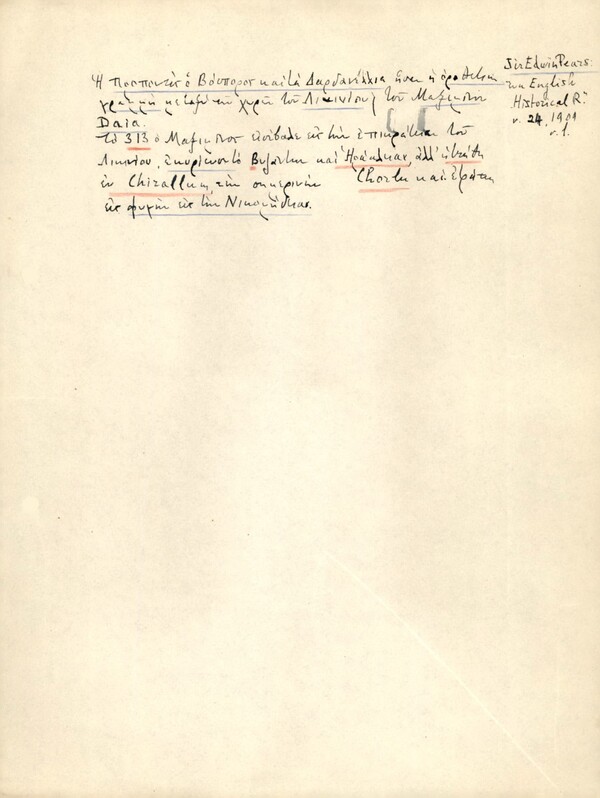 Ἡ Προποντὶς ὁ Βόσπορος καὶ τὰ Δαρδανέλλια ἦσαν ἡ ὁροθετικὴ
γραμμὴ μεταξὺ τῶν χωρῶν τοῦ Λικινίου καὶ τοῦ Μαξιμίνου
Daia.
Τὸ 313 ὁ Μαξιμῖνος εἰσέβαλε εἰς τὴν ἐπικράτειαν τοῦ
Λικινίου, ἐκυρίευσε τὸ Βυζάντιον καὶ Ἡράκλειαν, ἀλλ' ἡττήθη
ἐν Chirallum, τὴν σημερινὴν Chorlu καὶ ἐτράπη
εἰς φυγὴν εἰς τὴν Νικομήδειαν.
Sir Edwin Pears:
English
Historical R.
v. 24, 1909